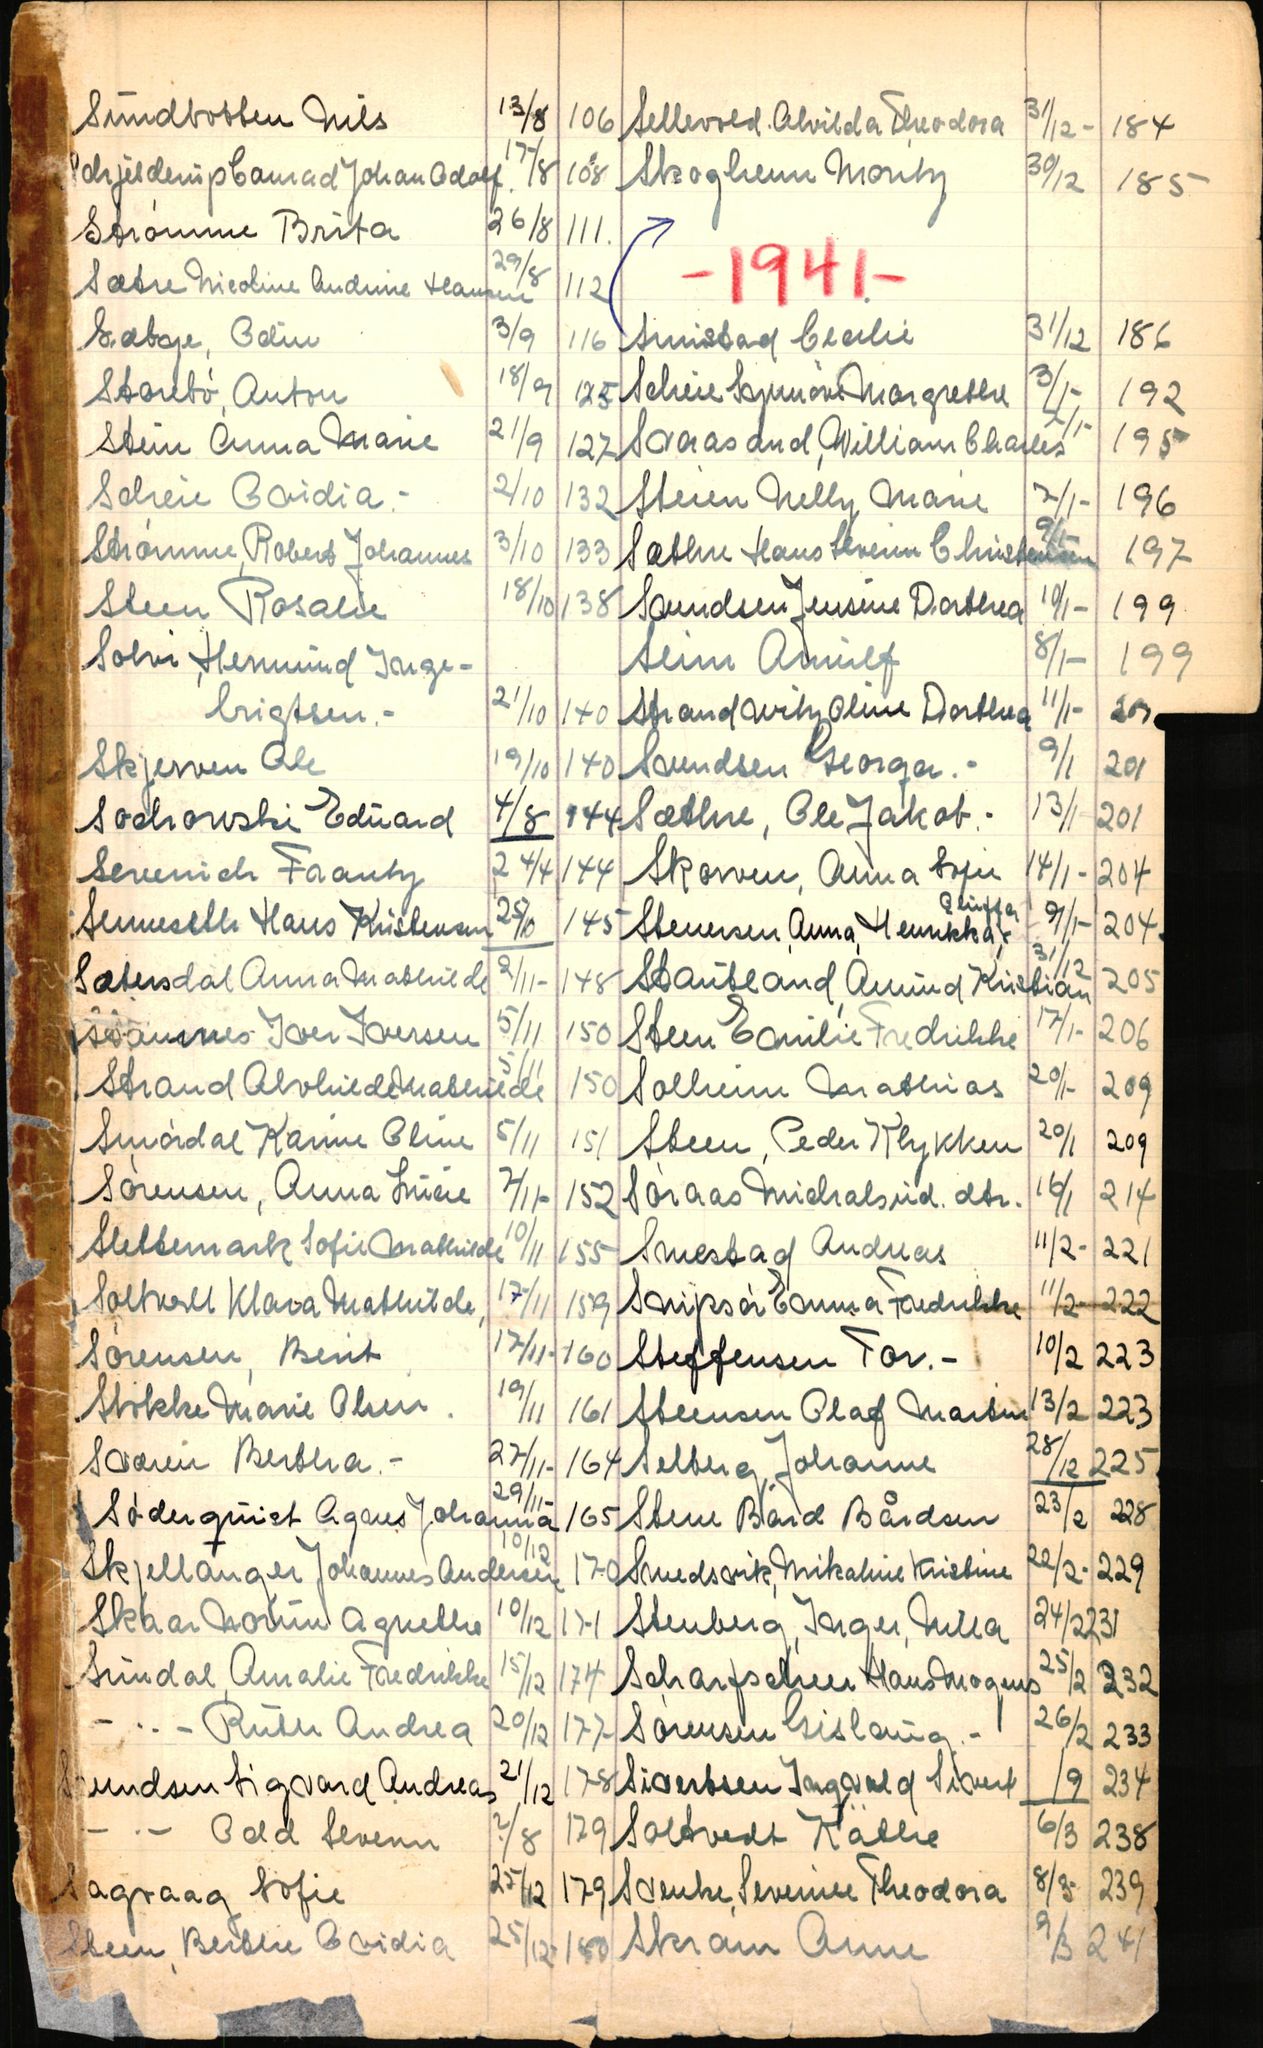 Sundbotten Nils 13/8 106
Schjelderup Conrad Johan Adolf. 17/8 108
Strømme Brita 26/8 111.
Sætre Nicoline Andrine Hansen 29/8 112
Sæbøe, Odin 3/9 116
Storebö, Anton 18/9 125
Stein Anna Marie 21/9 127
Scheie Ovidia.- 2/10 132
Strømme, Robert Johannes 3/10 133
Steen Rosalie 18/10 138
Solvi, Hermund Inge-
brigtsen.- 21/10 140
Skjerven Ole 19/10 140
Sochowski Eduard 4/8 144
Severich Frantz 24/4 144
Semeseth Hans Kristensen 25/10 145
Sætersdal Anna Mathilde 2/11- 148
Iver Iversen 5/11 150
Strand Alvhilde Mathilde 5/11 150
Smørdal Karine Oline 5/11 151
Sørensen, Anna Lucie 7/11- 152
Slettemark Sofie Mathilde 10/11 155
Soltvedt Klara Mathilde, 17/11 159
Sørensen, Berit 17/11- 160
Stokke Marie Olsen. 19/11 161
Svaren Berthea.- 27/11- 164
Søderquist Agnes Johanna 29/11- 165
Skjellanger Johannes Andersen 10/12 170
Skaar Agnethe 10/12 171
Sundal, Amalie Fredrikke 15/12 174
- .. - Ruth Andrea 20/12 177
Svendsen Sigvard Andreas 21/12 178
- .. - Odd Severin ?/8 179
Sagvaag Sofie 25/12 179
Steen, Berthe Ovidia 25/12- 180
Sellevold. Alvilda Theodora 31/12- 184
Skoghenn Moritz 30/12 185
-1941-
Smistad Cecilie 31/12 186
Scheie Synnöve Margrethe 3/1- 192
Svaasand, William Charles 7/1- 195
Steien Nelly Marie 7/1- 196
Sæthre Hans Severin Christensen 9/1 197
Svendsen Jensine Dorthea 10/1- 199
Seim Arnulf 8/1- 199
Strandwitz Oline Dorthea 11/1- 201
Svendsen Georga.- 9/1 201
Sæthre, Ole Jakob.- 13/1 201
Skorven, Anna Sofie 14/1- 204
Stenersen, Anna, Henrikka, 9/1- 204
Stautland, Amund Kristian 31/12 205
Steen Emilie Fredrikke 17/1- 206
Solheim Mathias 20/1- 209
Steen, Peder Klykken 20/1 209
Søraas Michalsind. dtr. 16/1 214
Smestad Andreas 11/2- 221
Snipsør Emma Fredrikke 11/2- 222
Steffensen Tor.- 10/2 223
Steensen Olaf Martin 13/2 223
Selberg, Johanne 28/12 225
Stene Bård Bårdsen 23/2 228
Smedsvik, Mikaline Kristine 22/2- 229
Stenberg, Inger, Milla 24/2 231
Scharfscheer Hans Mogens 25/2 232
Sørensen Gislaug.- 26/2 233
Sivertsen Ingvald Sivert /9 234
Soltvedt Käthe 6/3 238
Svenke, Severine Theodora 8/3- 239
Skram Anne 9/3 241